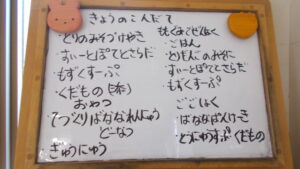 きょうのこんだて
・とりのみそづけやき
・すいーとぽてとさらだ
・もずくすーぷ
・くだもの
おやつ
・てづくりばななれんにゅう
どーなつ
ぎゅうにゅう
・ごはん
・とりどんのみそに
・すいーとぽてとさらだ
・もずくすーぷ
・ばななぱんけーき
くだもの